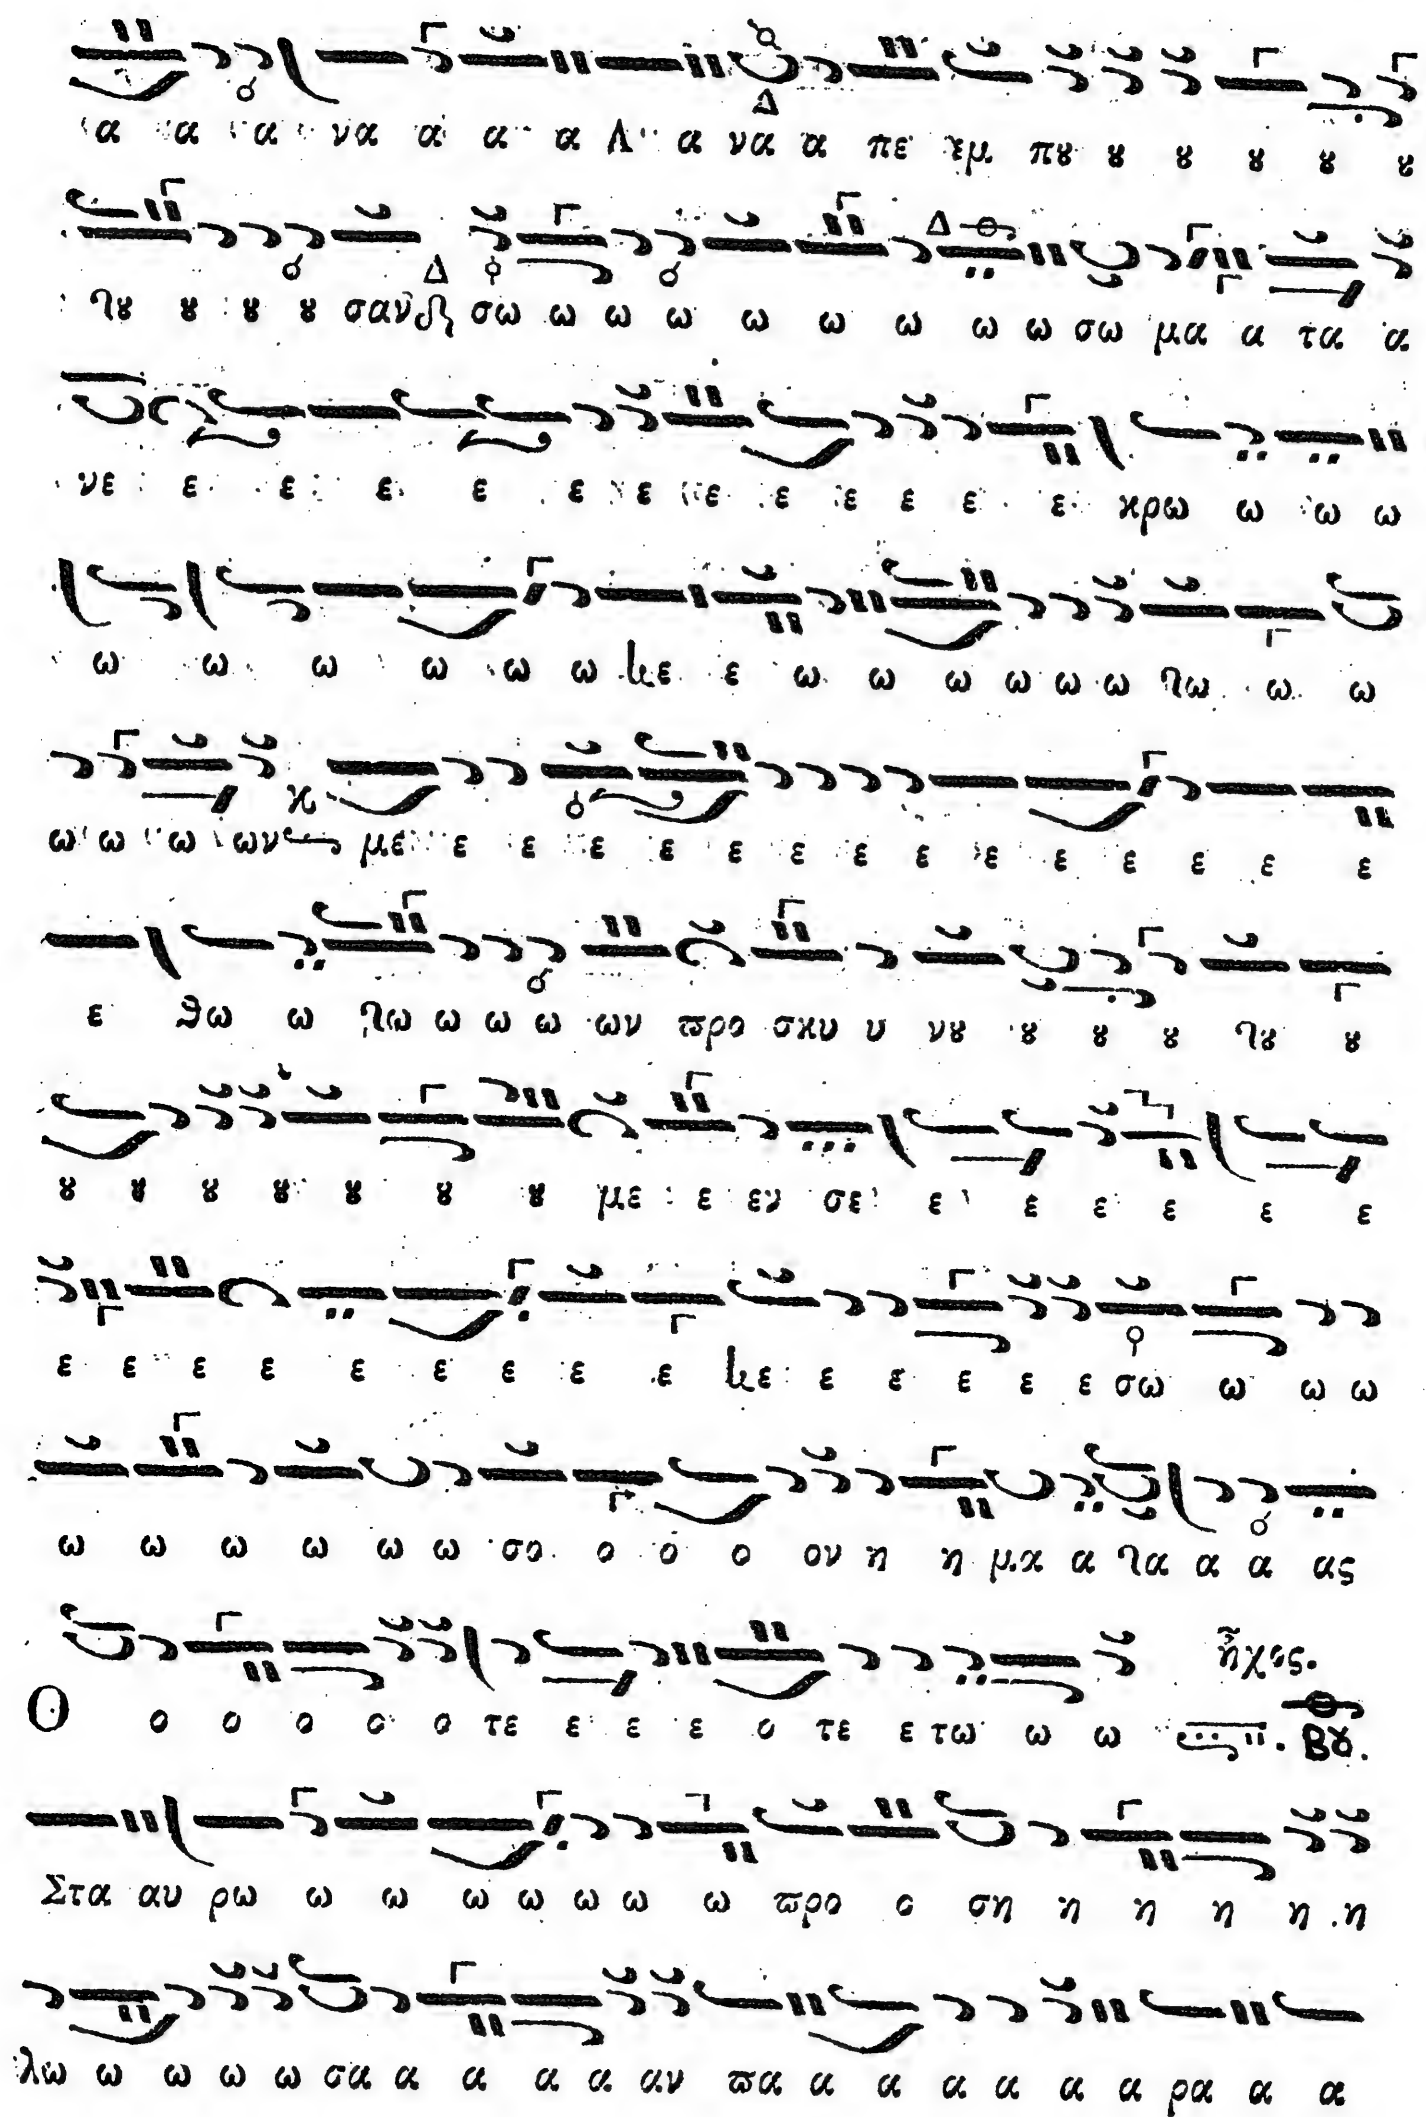 α α α να α α α Λ α να α πε εμ πȣ ȣ ȣ ȣ ȣ ȣ
τȣ ȣ ȣ ȣ σαν σω ω ω ω ω ω ω ω ω σω μα α τα α
νε ε ε ε ε ε ε ε ε ε ε ε ε κρω ω ω ω
ω ω ω ω ω ω κε ε ω ω ω ω ω ω τω ω ω
ω ω ω ων με ε ε ε ε ε ε ε ε ε ε ε ε ε ε
ε θω ω τω ω ω ω ων ϖρο σκυ υ νȣ ȣ ȣ ȣ τȣ ȣ
ȣ ȣ ȣ ȣ ȣ ȣ ȣ με ε εν σε ε ε ε ε ε ε
ε ε ε ε ε ε ε ε ε κε ε ε ε ε ε σω ω ω ω
ω ω ω ω ω ω σο ο ο ο ον η η μα α τα α α ας
Ο ο ο ο ο ο τε ε ε ε ο τε ε τω ω ω ἦχος. Βȣ.
Στα αυ ρω ω ω ω ω ω ω ω ϖρο ο ση η η η η η
λω ω ω ω ω σα α α α α αν ϖα α α α α α α ρα α α